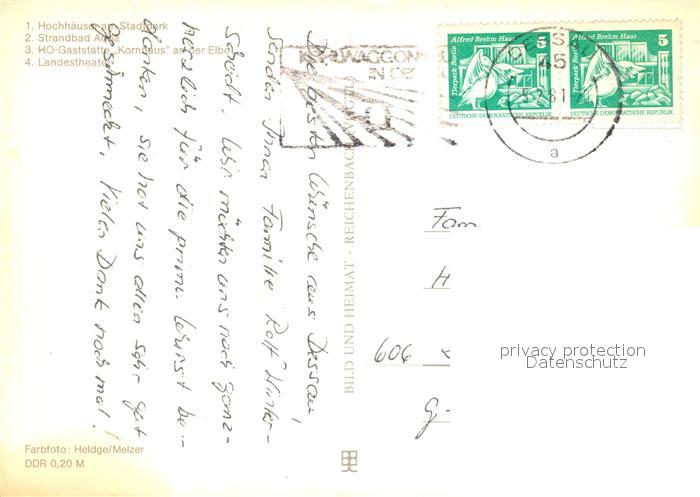 1. Hochhäuser am Stadtpark
2. Strandbad Adria
3. HO-Gaststätte "Kornhaus" an der Elbe
4. Landestheater
Die besten Wünsche aus Dessau,
sendet Ihnen Familie Rolf Winter-
scheidt. Wir möchten uns noch ganz-
herzlich für die prima Wurst be-
danken, sie hat uns allen sehr gut
geschmeckt. Vielen Dank nochmal!
Farbfoto: Heldge/Melzer
DDR 0,20 M
BILD UND HEIMAT · REICHENBACH
WAGGON
IN DE
Tierpark Berlin
Alfred Brehm Haus
5
DEUTSCHE DEMOKRATISCHE REPUBLIK
Tierpark Berlin
Alfred Brehm Haus
5
DEUTSCHE DEMOKRATISCHE REPUBLIK
DESSA
45
a
Fam
H
606
G-
privacy protection
Datenschutz